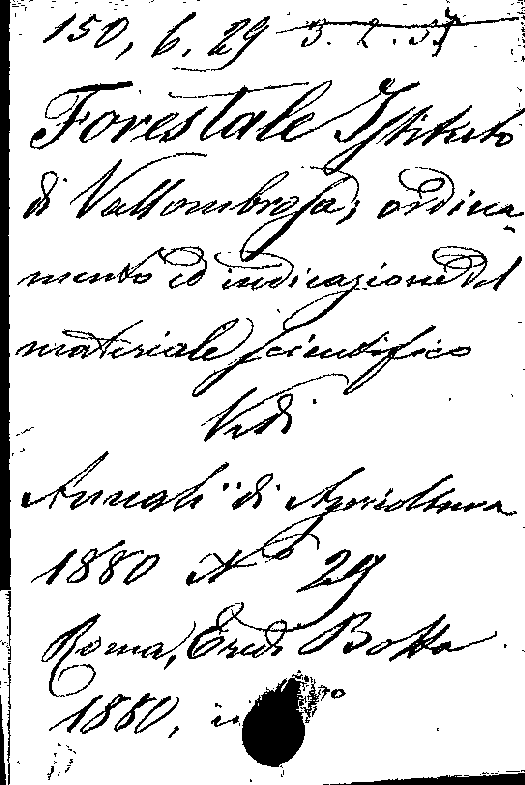 150, 6. 29 3. 2. 37
Forestale Istituto
di Vallombrosa; ordina-
mento ed indicazione del
materiale scientifico
Vedi
Annali di Agricoltura
1880 No 29
Roma, Eredi Botta
1880, in